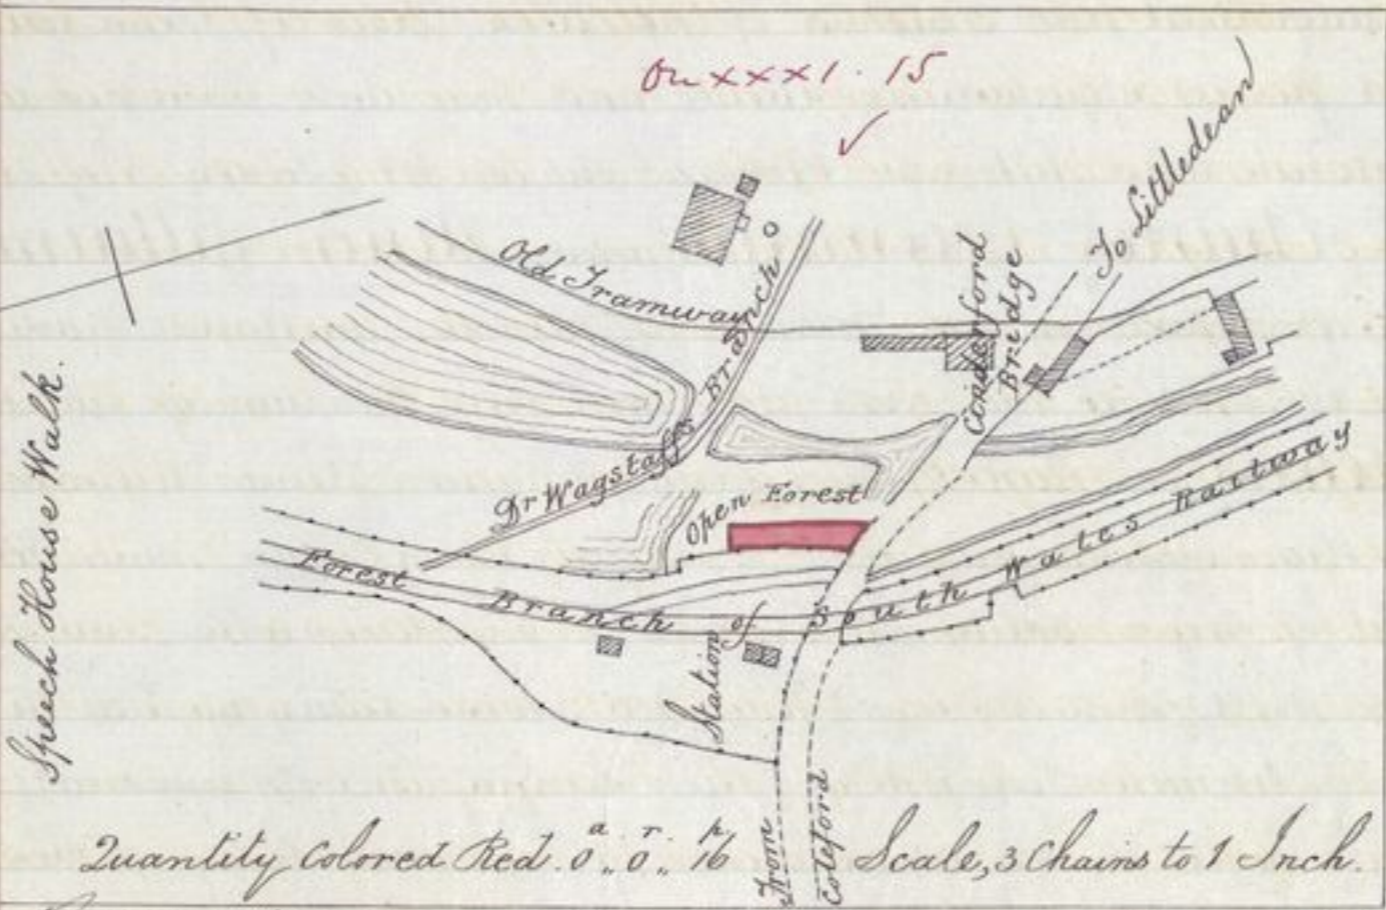 On XXXI. 15
✓
To Littledean
Old Tramway
Dr Wagstaffs Branch
Coaderford
Bridge
Speech House Walk.
Open Forest
Forest Branch of South Wales Railway
Station
From
Coleford
a. r. p.
Quantity Colored Red. 0,, 0,, 16
Scale, 3 Chains to 1 Inch.